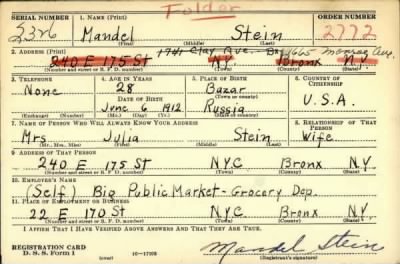 Folder
SERIAL NUMBER 1. NAME (Print) ORDER NUMBER
3326 Mandel Stein 2772
(First) (Middle) (Last)
1741 Clay Ave. Bx 1665 Monroe Ave.
2. ADDRESS (Print)
240 E 175 St NY Bronx N.Y.
(Number and street or R. F. D. number) (Town) (County) (State)
3. TELEPHONE 4. AGE IN YEARS 5. PLACE OF BIRTH 6. COUNTRY OF CITIZENSHIP
None 28 Bazar
DATE OF BIRTH (Town or county) U.S.A.
June 6 1912 Russia
(Exchange) (Number) (Mo.) (Day) (Yr.) (State or country)
7. NAME OF PERSON WHO WILL ALWAYS KNOW YOUR ADDRESS 8. RELATIONSHIP OF THAT PERSON
Mrs Julia Stein Wife
(Mr., Mrs., Miss) (First) (Middle) (Last)
9. ADDRESS OF THAT PERSON
240 E 175 St N.Y.C Bronx N.Y.
(Number and street or R. F. D. number) (Town) (County) (State)
10. EMPLOYER'S NAME
(Self) Big Public Market - Grocery Dep.
11. PLACE OF EMPLOYMENT OR BUSINESS
22 E 170 St N.Y.C Bronx N.Y.
(Number and street or R. F. D. number) (Town) (County) (State)
I AFFIRM THAT I HAVE VERIFIED ABOVE ANSWERS AND THAT THEY ARE TRUE.
REGISTRATION CARD
D. S. S. Form 1 (over) 16-17105 Mandel Stein
(Registrant's signature)